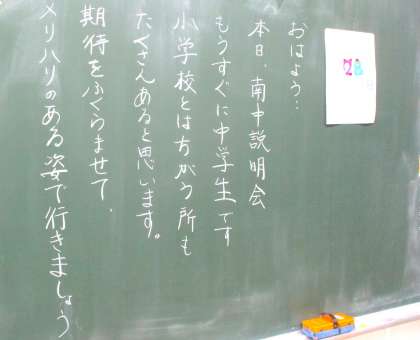 28
おはよう…
本日、南中説明会
もうすぐに中学生です
小学校とはちがう所も
たくさんあると思います。
期待をふくらませて、
メリハリのある姿で行きましょう